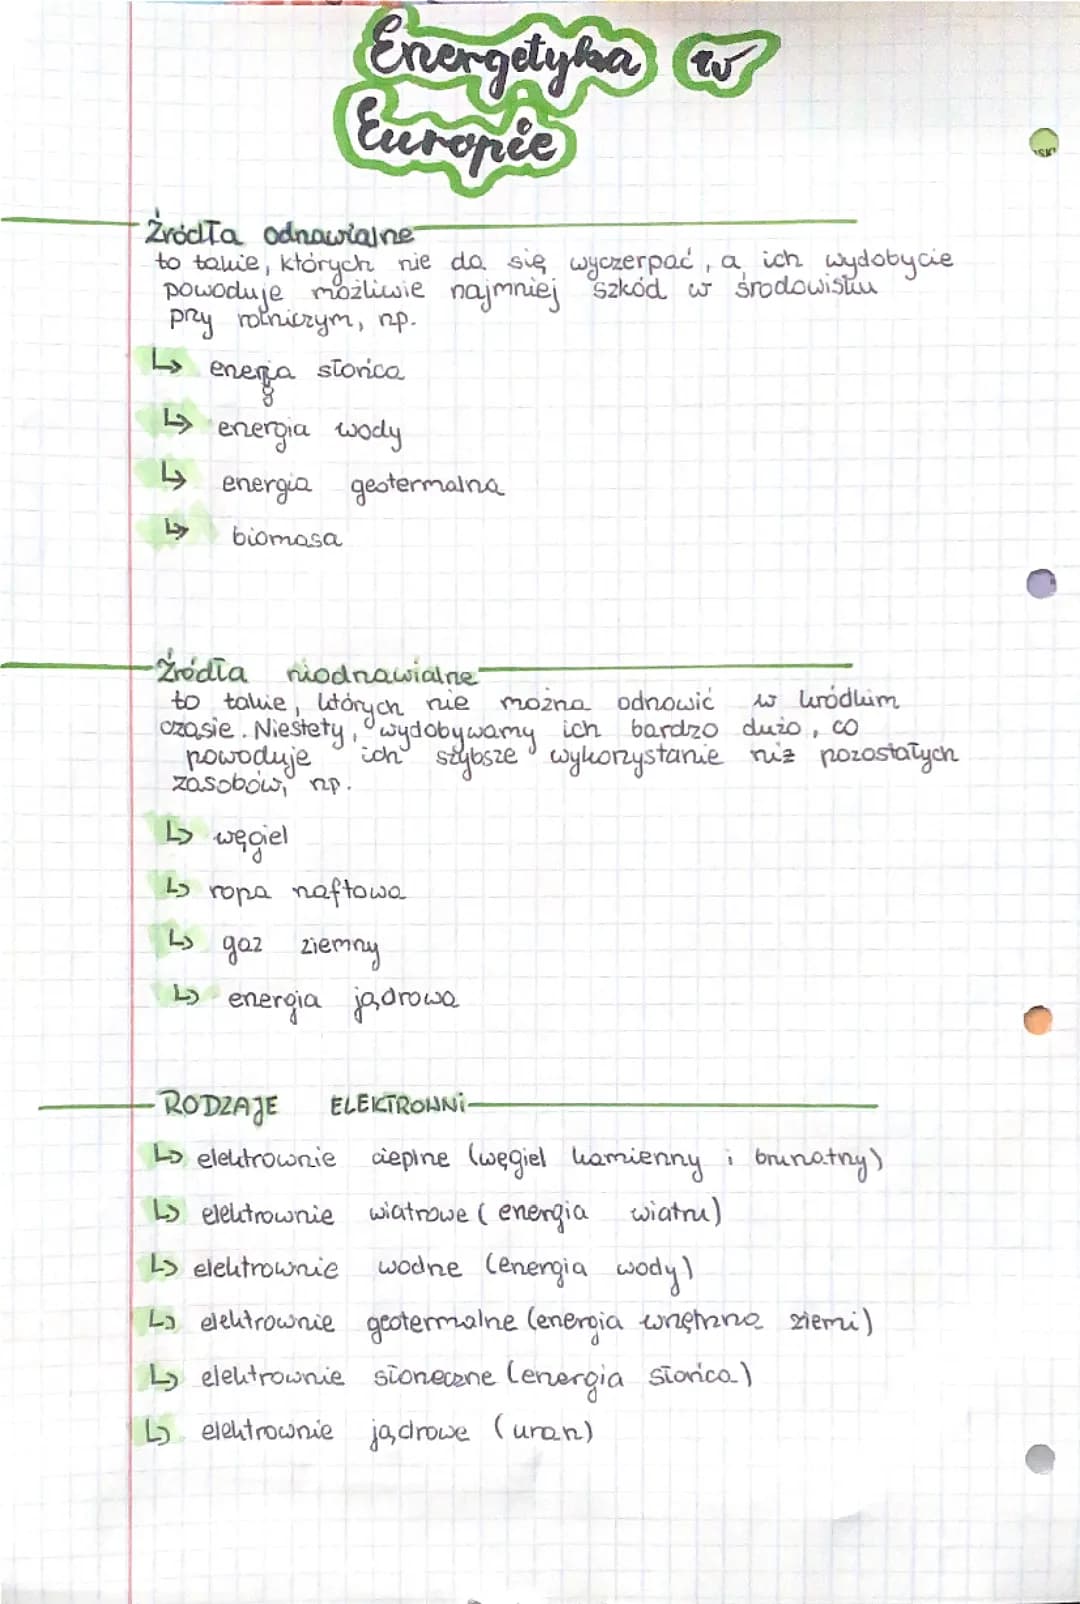 Energetyka w
Europie
Źródła odnawialne
to takie, których nie da się wyczerpać, a ich wydobycie
powoduje możliwie najmniej szkód w środowisku
przy rolniczym, np.
↳ energia słońca
↳ energia wody
↳ energia geotermalna
↳ biomasa
Źródła niodnawialne
to takie, których nie można odnowić w krótkim
czasie. Niestety, wydobywamy ich bardzo dużo, co
powoduje ich szybsze wykorzystanie niż pozostałych
zasobów, np.
↳ węgiel
↳ ropa naftowa
↳ gaz ziemny
↳ energia jądrowa
RODZAJE ELEKTROWNI
↳ elektrownie cieplne (węgiel kamienny i brunatny)
↳ elektrownie wiatrowe (energia wiatru)
↳ elektrownie wodne (energia wody)
↳ elektrownie geotermalne (energia wnętrzna ziemi)
↳ elektrownie słoneczne (energia słońca)
↳ elektrownie jądrowe (uran)